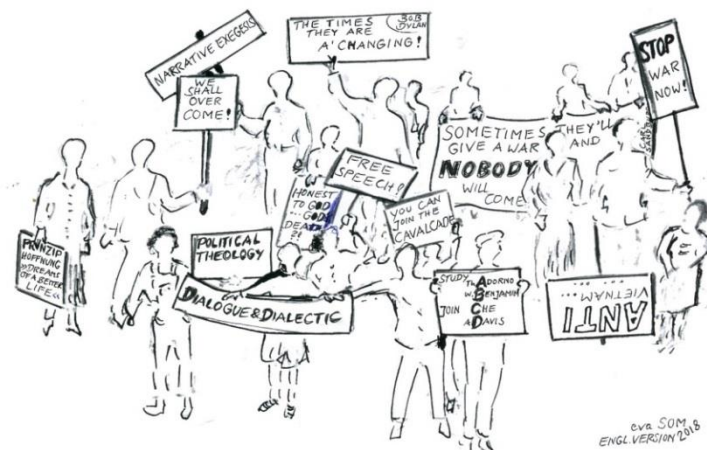 NARRATIVE EXEGESIS
WE
SHALL
OVER
COME!
THE TIMES
THEY ARE
A' CHANGING!
BOB
DYLAN
STOP
WAR
NOW!
SOMETIMES THEY'LL
GIVE A WAR AND
NOBODY
WILL
COME
CARL
SANDBURG
FREE
SPEECH!
HONEST
TO GOD
...GOD IS
DEAD
?!
YOU CAN
JOIN THE
CAVALCADE
PRINZIP
HOFFNUNG
»DREAMS
OF A BETTER
LIFE«
POLITICAL
THEOLOGY
DIALOGUE & DIALECTIC
STUDY Th. ADORNO
W. BENJAMIN
JOIN CHE
A DAVIS
ANTI
VIETNAM...
eva SOM
ENGL. VERSION 2018